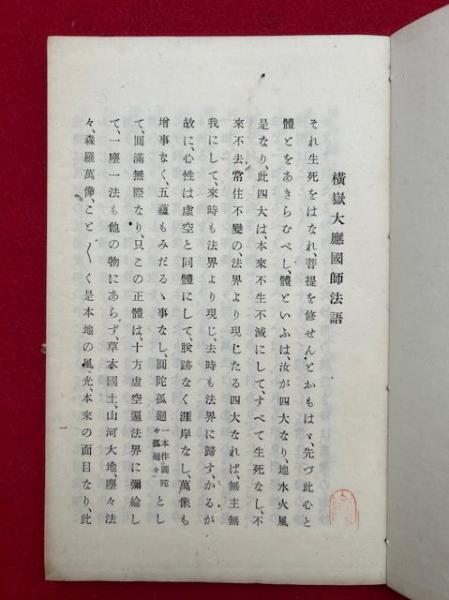 橫嶽大應國師法語
それ生死をはなれ、菩提を修せんとかもはヾ、先づ此心と
體とをあきらむべし、體といふは、汝が四大なり、地水火風
是なり、此四大は、本來不生不滅にして、すべて生死なし、不
來不去常住不變の、法界より現じたる四大なれば、無主無
我にして、來時も法界より現じ、去時も法界に歸す、かるが
故に、心性は虛空と同體にして、朕跡なく涯岸なし、萬像も
增事なく、五蘊もみだるヽ事なし、圓陀孤迥一本作圓陀々孤迥々とし
て、圓滿無際なり、只この正體は、十方虛空遍法界に彌綸し
て、一塵一法も他の物にあらず、草木國土、山河大地、塵々法
々、森羅萬像、こと〲く是本地の風光、本來の面目なり、此
一